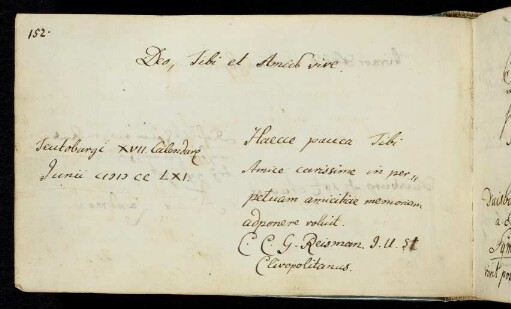 152.
Deo, Tibi et Amicis vive.
Teutoburgi XVII Calendar
Junii CIƆIƆCCLXI.
Haecce pauca Tibi
Amice carissime in per„
petuam amicitiae memoriam
adponere voluit.
C. C. G. Reisman. I. U. St
Clivopolitanus.
Duisb
à d